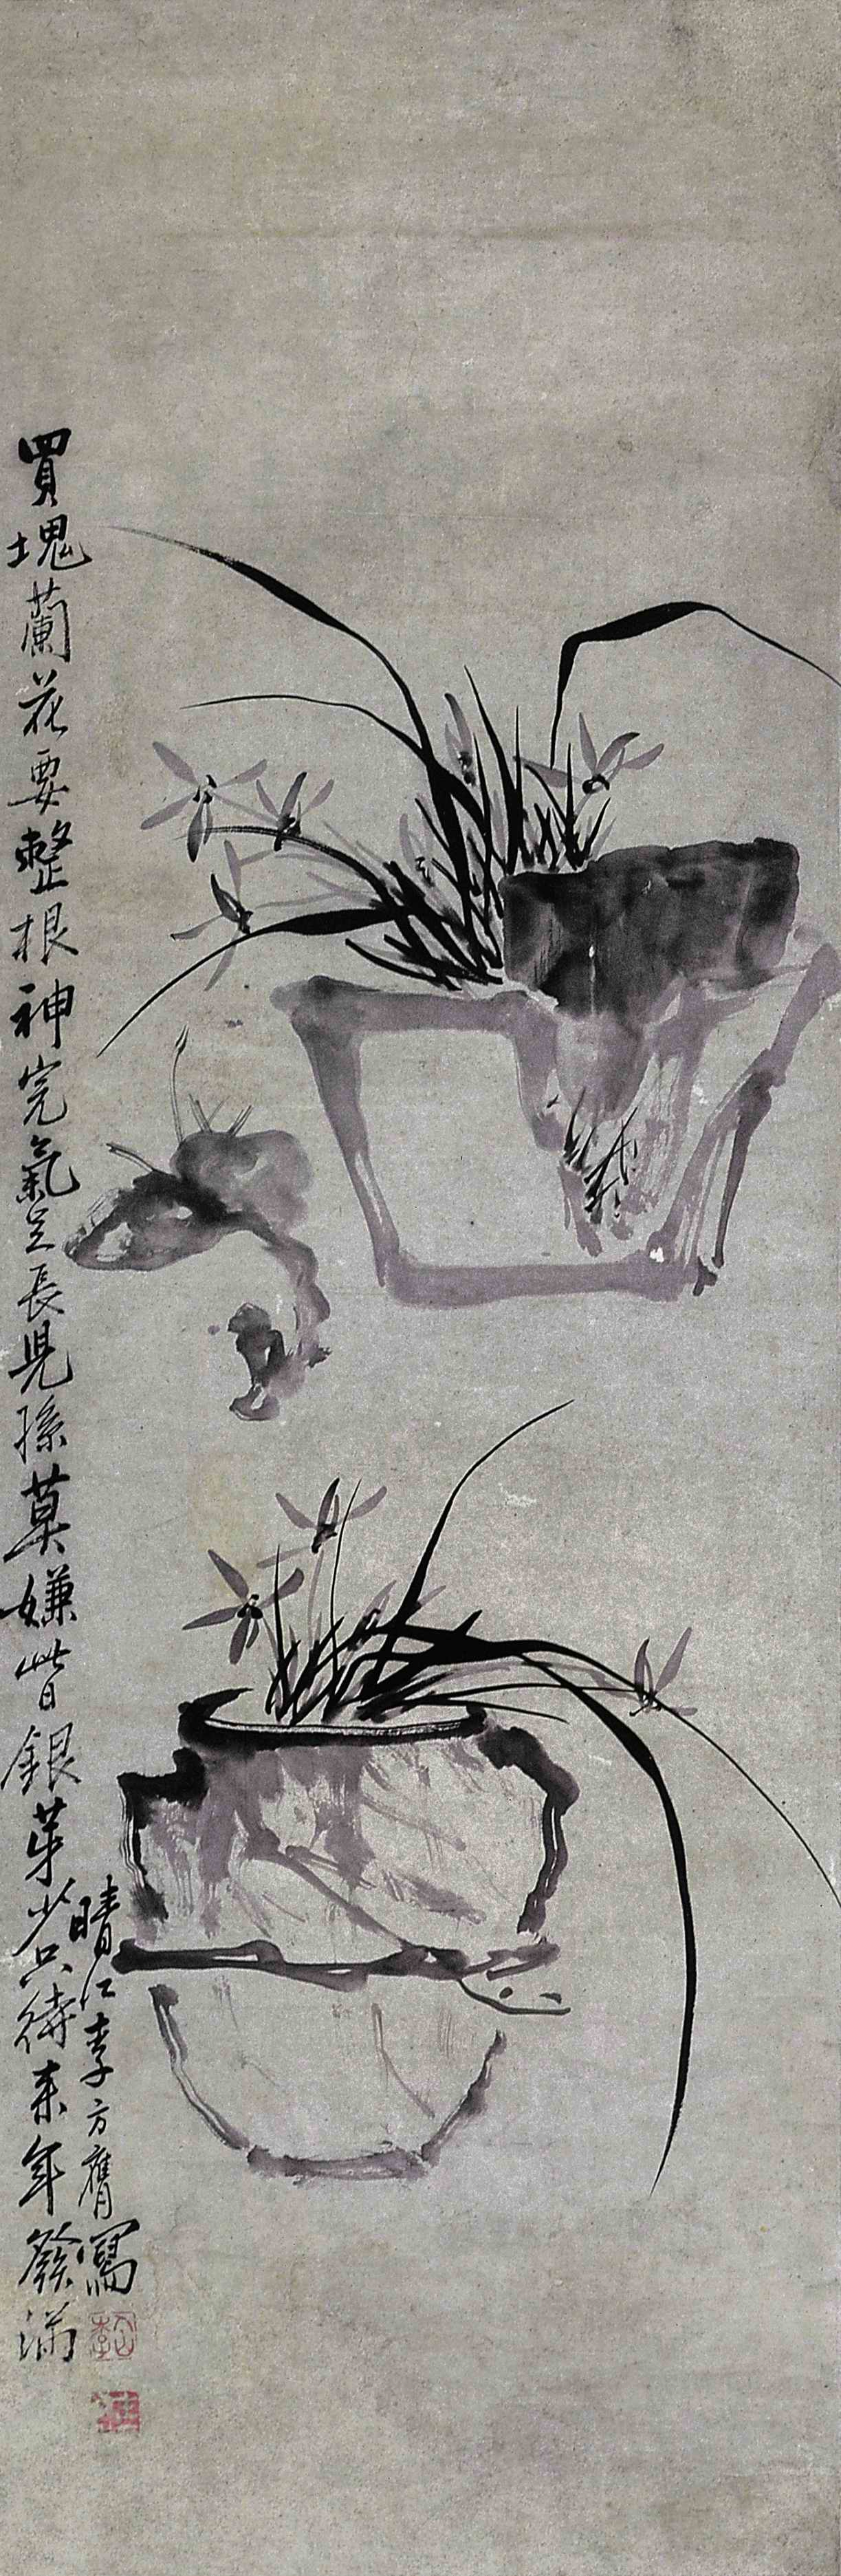 買塊蘭花要整根神完氣足長兒孫莫嫌此日銀芽少只待来年發滿
晴江李方膺寫